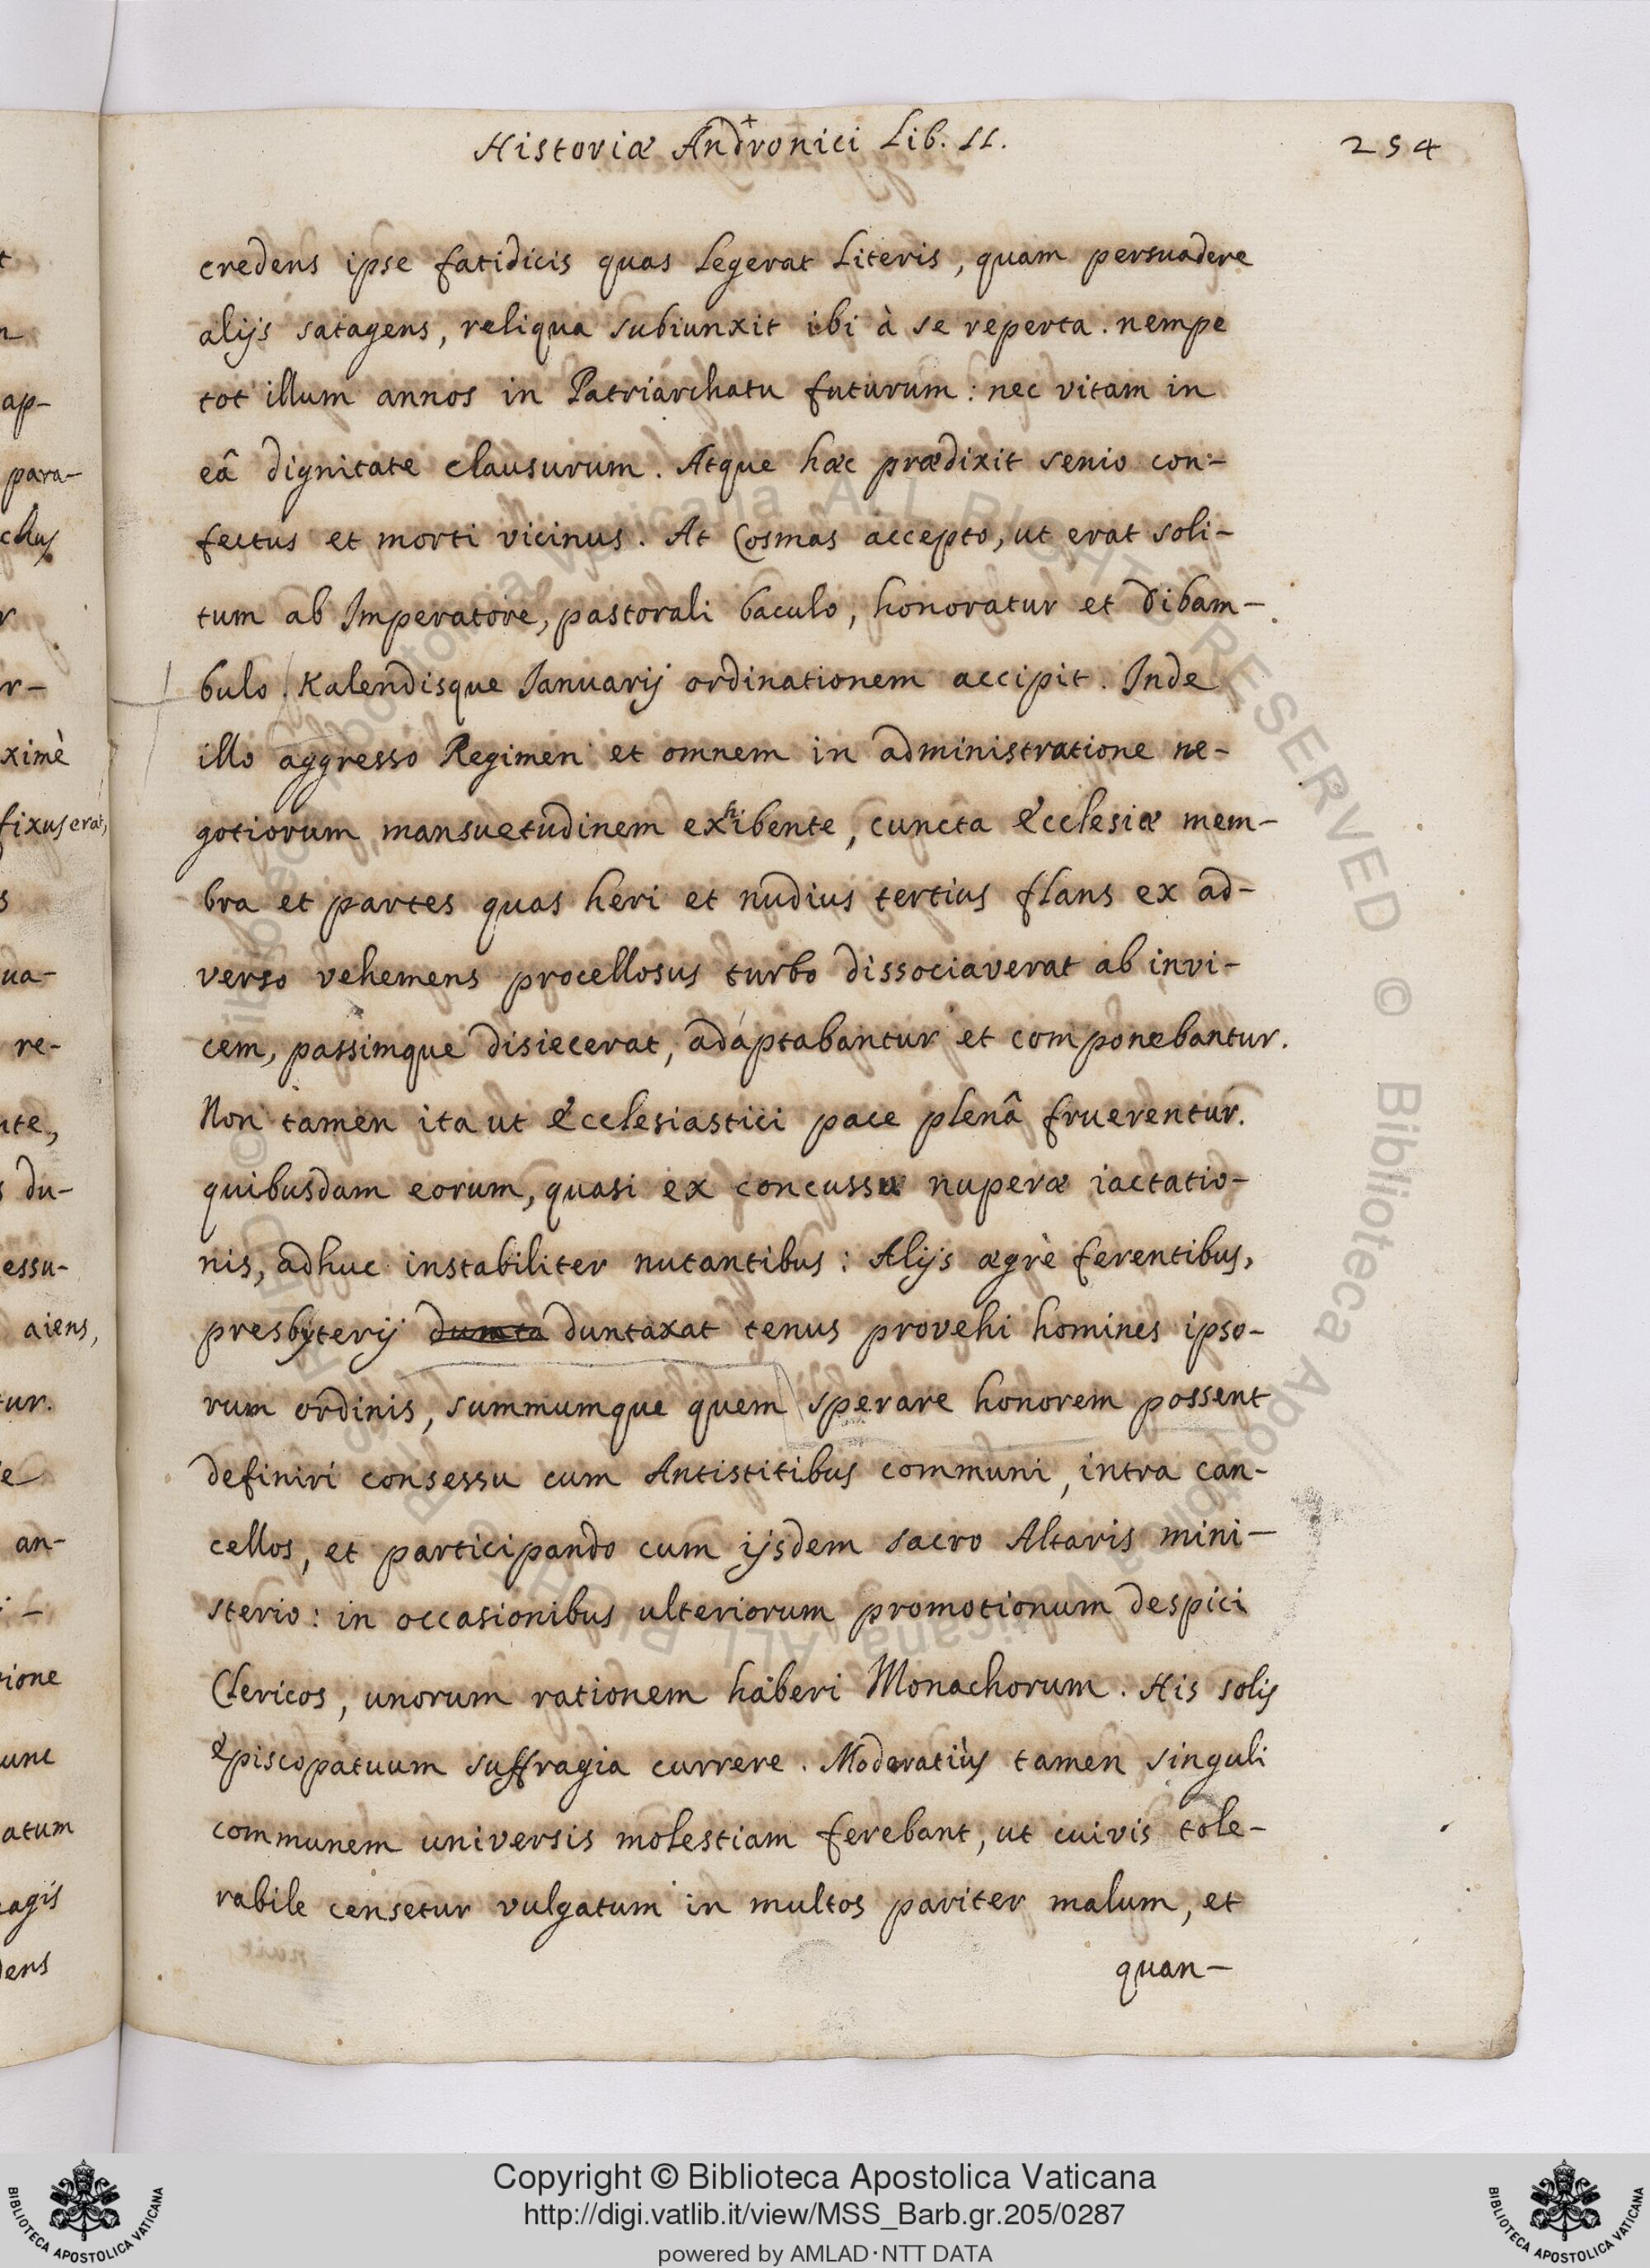 Historiæ Andronici Lib. II.
254
credens ipse fatidicis quas legerat literis, quam persuadere
alijs satagens, reliqua subiunxit ibi à se reperta. nempe
tot illum annos in Patriarchatu futurum: nec vitam in
eâ dignitate clausurum. Atque hæc prædixit senio con-
fectus et morti vicinus. At Cosmas accepto, ut erat soli-
tum ab Imperatore, pastorali baculo, honoratur et dibam-
bulo. Kalendisque Ianuarij ordinationem accipit. Inde
illo aggresso Regimen et omnem in administratione ne-
gotiorum mansuetudinem exhibente, cuncta Ecclesiæ mem-
bra et partes quas heri et nudius tertius flans ex ad-
verso vehemens procellosus turbo dissociaverat ab invi-
cem, passimque disiecerat, adaptabantur et componebantur.
Non tamen ita ut Ecclesiastici pace plenâ fruerentur.
quibusdam eorum, quasi ex concussu nuperæ iactatio-
nis, adhuc instabiliter nutantibus: Alijs ægrè ferentibus,
presbyterij dumta duntaxat tenus provehi homines ipso-
rum ordinis, summumque quem sperare honorem possent
definiri consessu cum Antistitibus communi, intra can-
cellos, et participando cum ijsdem sacro Altaris mini-
sterio: in occasionibus ulteriorum promotionum despici
Clericos, unorum rationem haberi Monachorum. His solis
Episcopatuum suffragia currere. Moderatiùs tamen singuli
communem universis molestiam ferebant, ut cuivis tole-
rabile censetur vulgatum in multos pariter malum, et
quan-
ap-
para-
chus
r-
ximè
fixus erat,
ua-
re-
nte,
du-
essu-
aiens,
tur.
an-
tione
unc
atum
agis
dens
Copyright © Biblioteca Apostolica Vaticana
http://digi.vatlib.it/view/MSS_Barb.gr.205/0287
powered by AMLAD·NTT DATA
BIBLIOTECA APOSTOLICA VATICANA
BIBLIOTECA APOSTOLICA VATICANA
© Biblioteca Apostolica Vaticana ALL RIGHTS RESERVED © Biblioteca Apostolica Vaticana ALL RIGHTS RESERVED